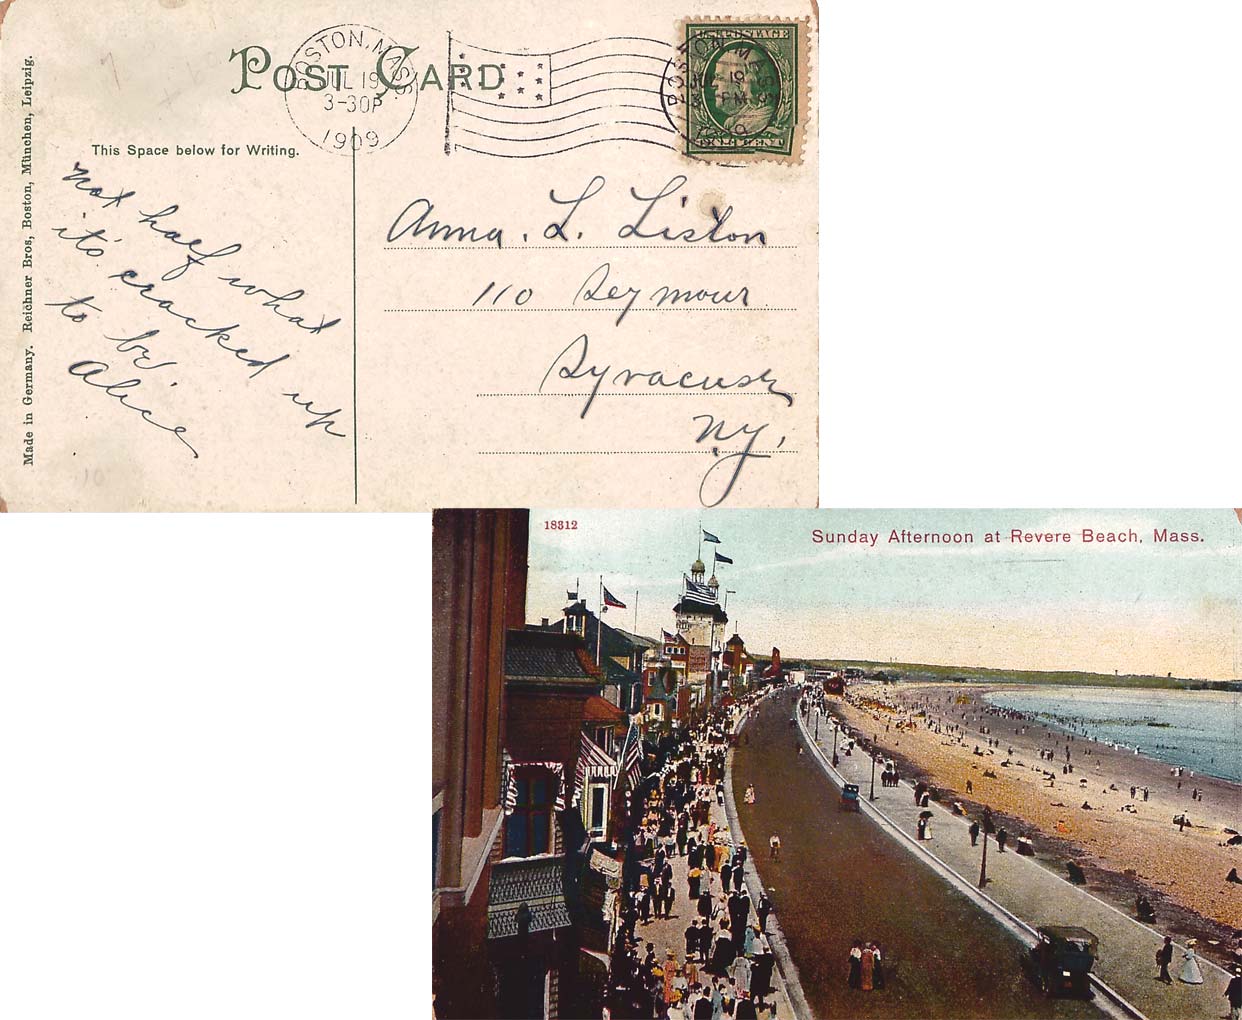 POST CARD
BOSTON, MASS.
JUL 19
3-30P
1909
U.S. POSTAGE
BOSTON, MASS.
JUL 19
1909
ONE CENT
This Space below for Writing.
Made in Germany. Reichner Bros, Boston, München, Leipzig.
not half what
it's cracked up
to be.
Alice
Anna. L. Liston
110 Seymour
Syracuse
N.Y.
18312
Sunday Afternoon at Revere Beach, Mass.